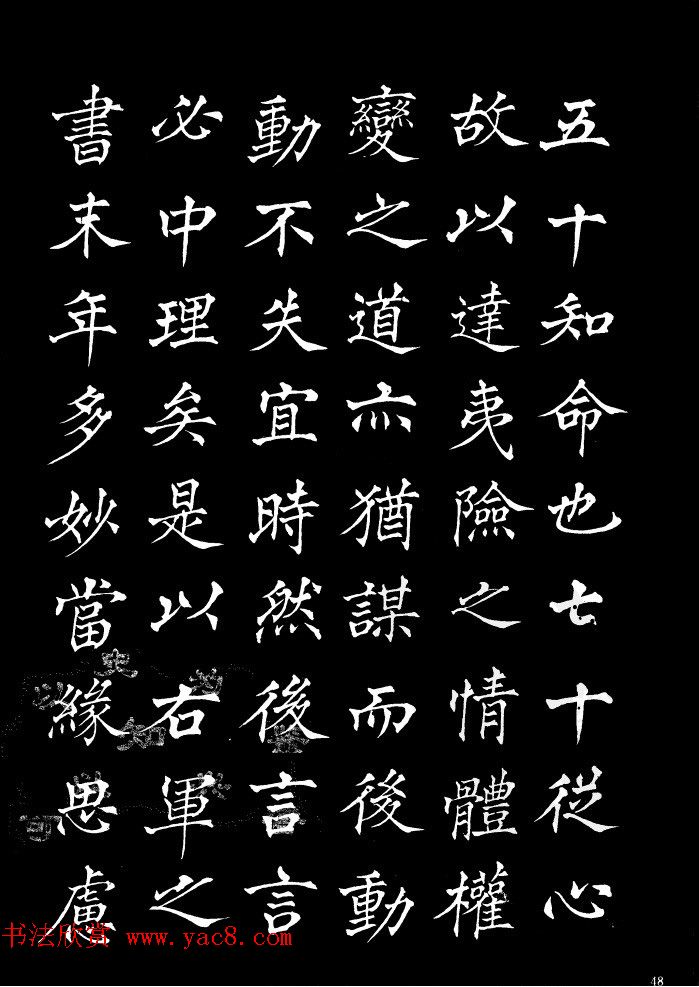 五十知命也七十從心
故以達夷險之情體權
變之道亦猶謀而後動
動不失宜時然後言言
必中理矣是以右軍之
書末年多妙當緣思慮
书法欣赏 www.yac8.com
48